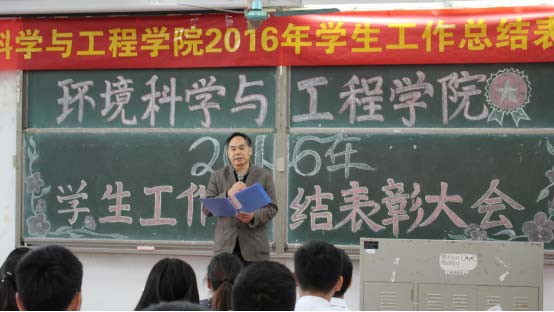 科学与工程学院2016年学生工作总结表
环境科学与工程学院
2016年
学生工作 结表彰大会